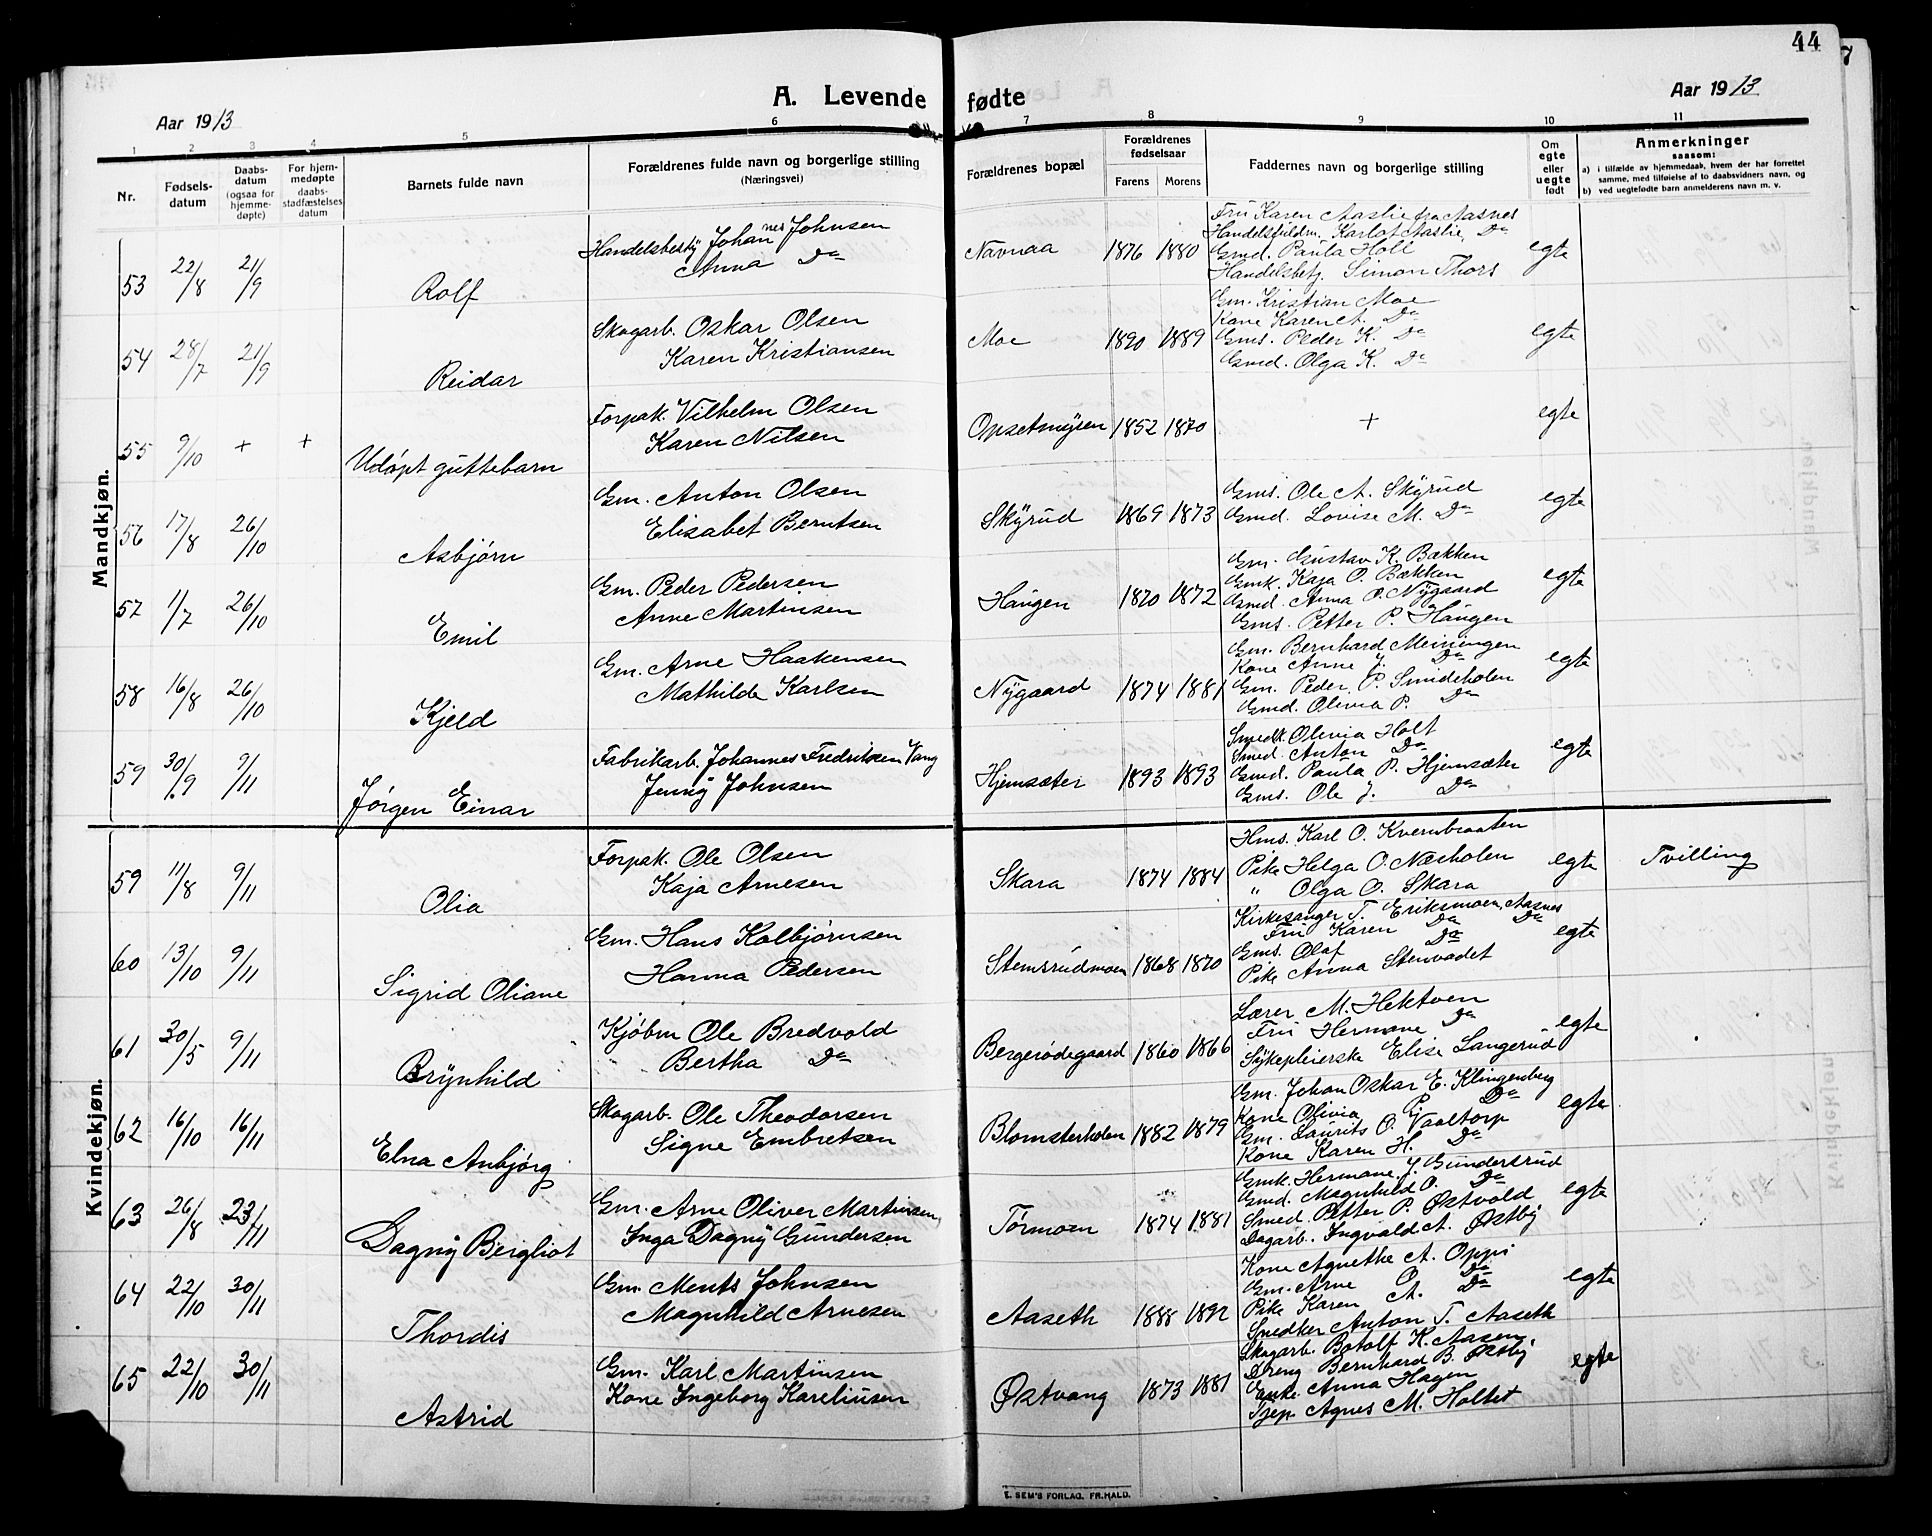 44
A. Levende fødte
Aar 1913
Aar 1913
1 2 3 4 5 6 7 8 9 10 11
Nr.
Fødsels-
datum
Daabs-
datum
(ogsaa for
hjemme-
døpte)
For hjem-
medøpte
daabs-
stadfæstelses
datum
Barnets fulde navn
Forældrenes fulde navn og borgerlige stilling
(Næringsvei)
Forældrenes bopæl
Forældrenes
fødselsaar
Farens Morens
Faddernes navn og borgerlige stilling
Om
egte
eller
uegte
født
Anmerkninger
saasom:
a) i tilfælde av hjemmedaab, hvem der har forrettet
samme, med tilføielse af to daabsvidners navn, og
b) ved uegtefødte barn anmelderens navn m. v.
Mandkjøn.
53 22/8 21/9 Rolf
Handelsbesty Johannes Johnsen
Anna Do
Navnaa 1876 1880
Fru Karen Aaslie fra Aasnes
Handelsfuldm. Karlot Aaslie, Do
Gmd. Paula Holt
Handelsbetj. Simon Thors
egte
54 28/7 21/9 Reidar
Skogarb. Oskar Olsen
Karen Kristiansen
Moe 1890 1889
Gm. Kristian Moe
Kone Karen A. Do
Gms. Peder K. Do
Gmd. Olga K. Do
egte
55 9/10 + + Udøpt guttebarn
Forpak. Vilhelm Olsen
Karen Nilsen
Opsetmysen 1852 1870
+
egte
56 17/8 26/10 Asbjørn
Gm. Anton Olsen
Elisabet Berntsen
Skyrud 1869 1873
Gms. Ole A. Skyrud
Gmd. Lovise M. Do
egte
57 1/7 26/10 Emil
Gm. Peder Pedersen
Anne Martinsen
Haugen 1870 1872
Gm. Gustav K. Bækken
Gmk. Kaja O. Bækken
Gmd. Anna P. Nygaard
Gms. Petter P. Haugen
egte
58 16/8 26/10 Kjeld
Gm. Arne Haakensen
Mathilde Karlsen
Nygaard 1874 1881
Gm. Bernhard Meiningen
Kone Anne J. Do
Gm. Peder P. Smideholen
Gmd. Olivia P. Do
egte
59 30/9 9/11 Jørgen Einar
Fabrikarb. Johannes Fredriksen Vang
Jenny Johnsen
Hjemsæter 1893 1893
Smedk. Olivia Holt
Smed. Anton Do
Gmd. Paula P. Hjemsæter
Gms. Ole J. Do
egte
Kvindekjøn.
59 11/8 9/11 Olia
Forpak. Ole Olsen
Kaja Arnesen
Skara 1874 1884
Hms. Karl O. Kvernbraaten
Pike Helga O. Næsholen
" Olga O. Skara
egte
Tvilling
60 13/10 9/11 Sigrid Oliane
Gm. Hans Kolbjørnsen
Hanna Pedersen
Stemsrudmoen 1868 1870
Kirkesanger T. Eriksmoen, Aasnes
Fru Karen Do Do
Gms. Olaf Do
Pike Anna Stenvadet
egte
61 30/5 9/11 Brynhild
Kjøbm Ole Bredvold
" Bertha Do
Bergerødegaard 1860 1866
Lærer M. Hektoen
Fru Hermane Do
Sykepleierske Elise Langerud
egte
62 16/10 16/11 Elna Anbjørg
Skogarb. Ole Theodorsen
Signe Embretsen
Blomsterholen 1882 1879
Gm. Johan Oskar E. Klingenberg
Kone Olivia P. Do
Gm. Laurits O. Vaaltorp
Kone Karen H. Do
egte
63 26/8 23/11 Dagny Bergliot
Gm. Arne Oliver Martinsen
Inga Dagny Gundersen
Tørmoen 1874 1881
Gmk. Hermane J. Gundersrud
Gmd. Magnhild O. Do
Smed. Petter P. Østvold
Dagarb. Ingvald A. Østby
egte
64 22/10 30/11 Thordis
Gm. Ments Johnsen
Magnhild Arnesen
Aaseth 1888 1892
Kone Agnethe A. Oppi
Gm. Arne P. Do
Pike Karen A. Do
Snedker Anton T. Aaseth
egte
65 22/10 30/11 Astrid
Gm. Karl Martinsen
Kone Ingeborg Kareliusen
Østvang 1873 1881
Skogarb. Botolf K. Aasen,
Dreng Bernhard B. Østby
Enke Anna Hagen
Tjep. Agnes M. Holtet
egte
E. SEM'S FORLAG, FR.HALD.